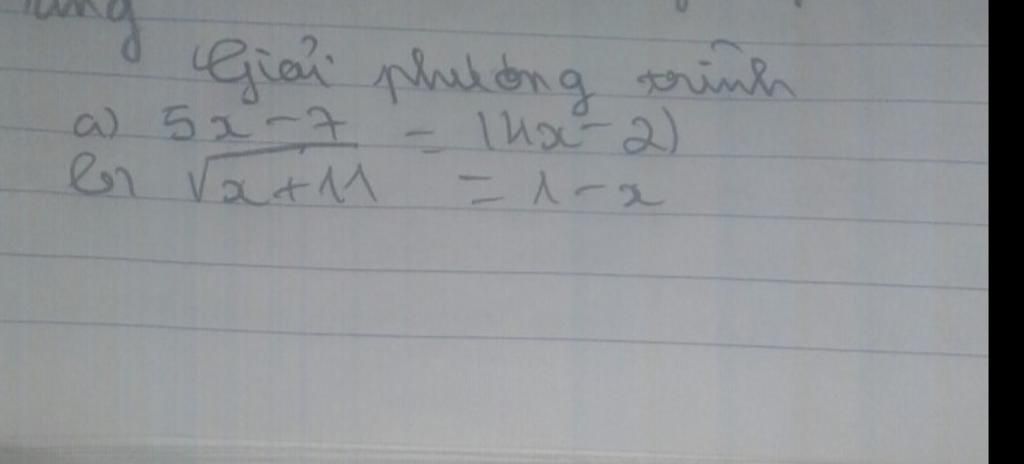 Giải phương trình
a) 5x - 7 = |4x - 2)
b) √x+11 = 1 - x